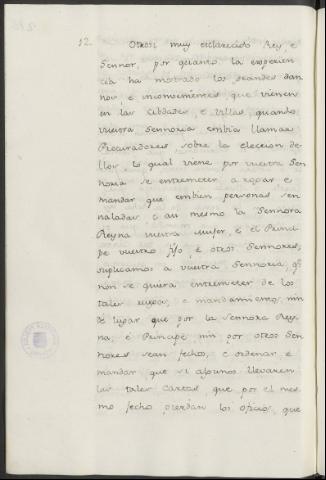 12. Otrosi muy esclarecido Rey, e
Sennor, por quanto la experien
cia ha mostrado los grandes dan
nos, e inconvenientes que vienen
en las Cibdades, e Villas, quando
vuestra Sennoria embia llamar
Procuradores sobre la eleccion de
llos, lo qual viene por vuestra Sen
noria se entremeter a rogar, e
mandar que embien personas sen
naladas, e asi mesmo la Sennora
Reyna vuestra muger, e el Princi
pe vuestro fijo, e otros Sennores,
suplicamos a vuestra Sennoria, q.e
non se quiera entremeter de los
tales ruegos, e mandamientos, nin
dé lugar que por la Sennora Rey
na, e Principe nin por otros Sen
nores sean fechos, e ordenar, e
mandar que si algunos llevaren
las tales Cartas, que por el mes
mo fecho pierdan los oficios, que